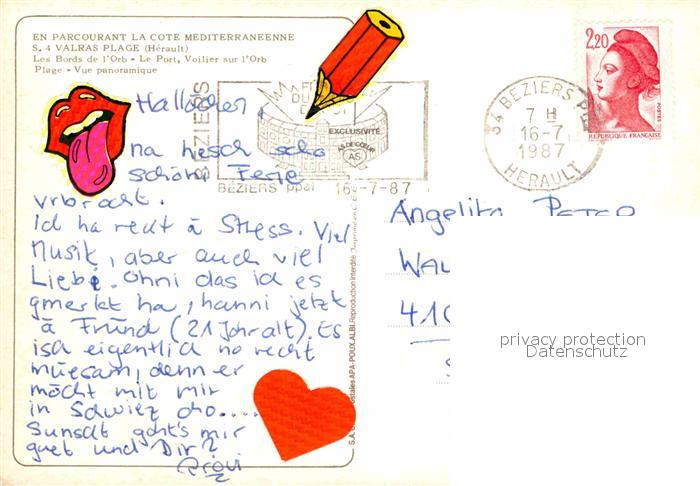 EN PARCOURANT LA COTE MEDITERRANEENNE
S. 4 VALRAS PLAGE (Hérault)
Les Bords de l'Orb - Le Port, Voilier sur l'Orb
Plage - Vue panoramique
BEZIERS
EXCLUSIVITÉ
AS DE CŒUR
AS
BÉZIERS ppal 16-7-87
34 BEZIERS
7 H
16-7
1987
HERAULT
2,20
POSTES
REPUBLIQUE FRANÇAISE
na hesch scho
schöni Ferie
vrbracht.
Ich ha recht ä Stress. Viel
Musik, aber auch viel
Liebi. Ohni das ich es
gmerkt ha, hanni jetzt
ä Fründ (21 Johr alt). Es
isch eigentlich no recht
müesam, denn er
möcht mit mir
in Schwiez cho.....
Sunscht goht's mir
guet und Dir?
Angelita PETER
WAL
410
S.A. Postales APA-POUX, ALBI. Reproduction Interdite Imprimé en C.E.E.
privacy protection
Datenschutz